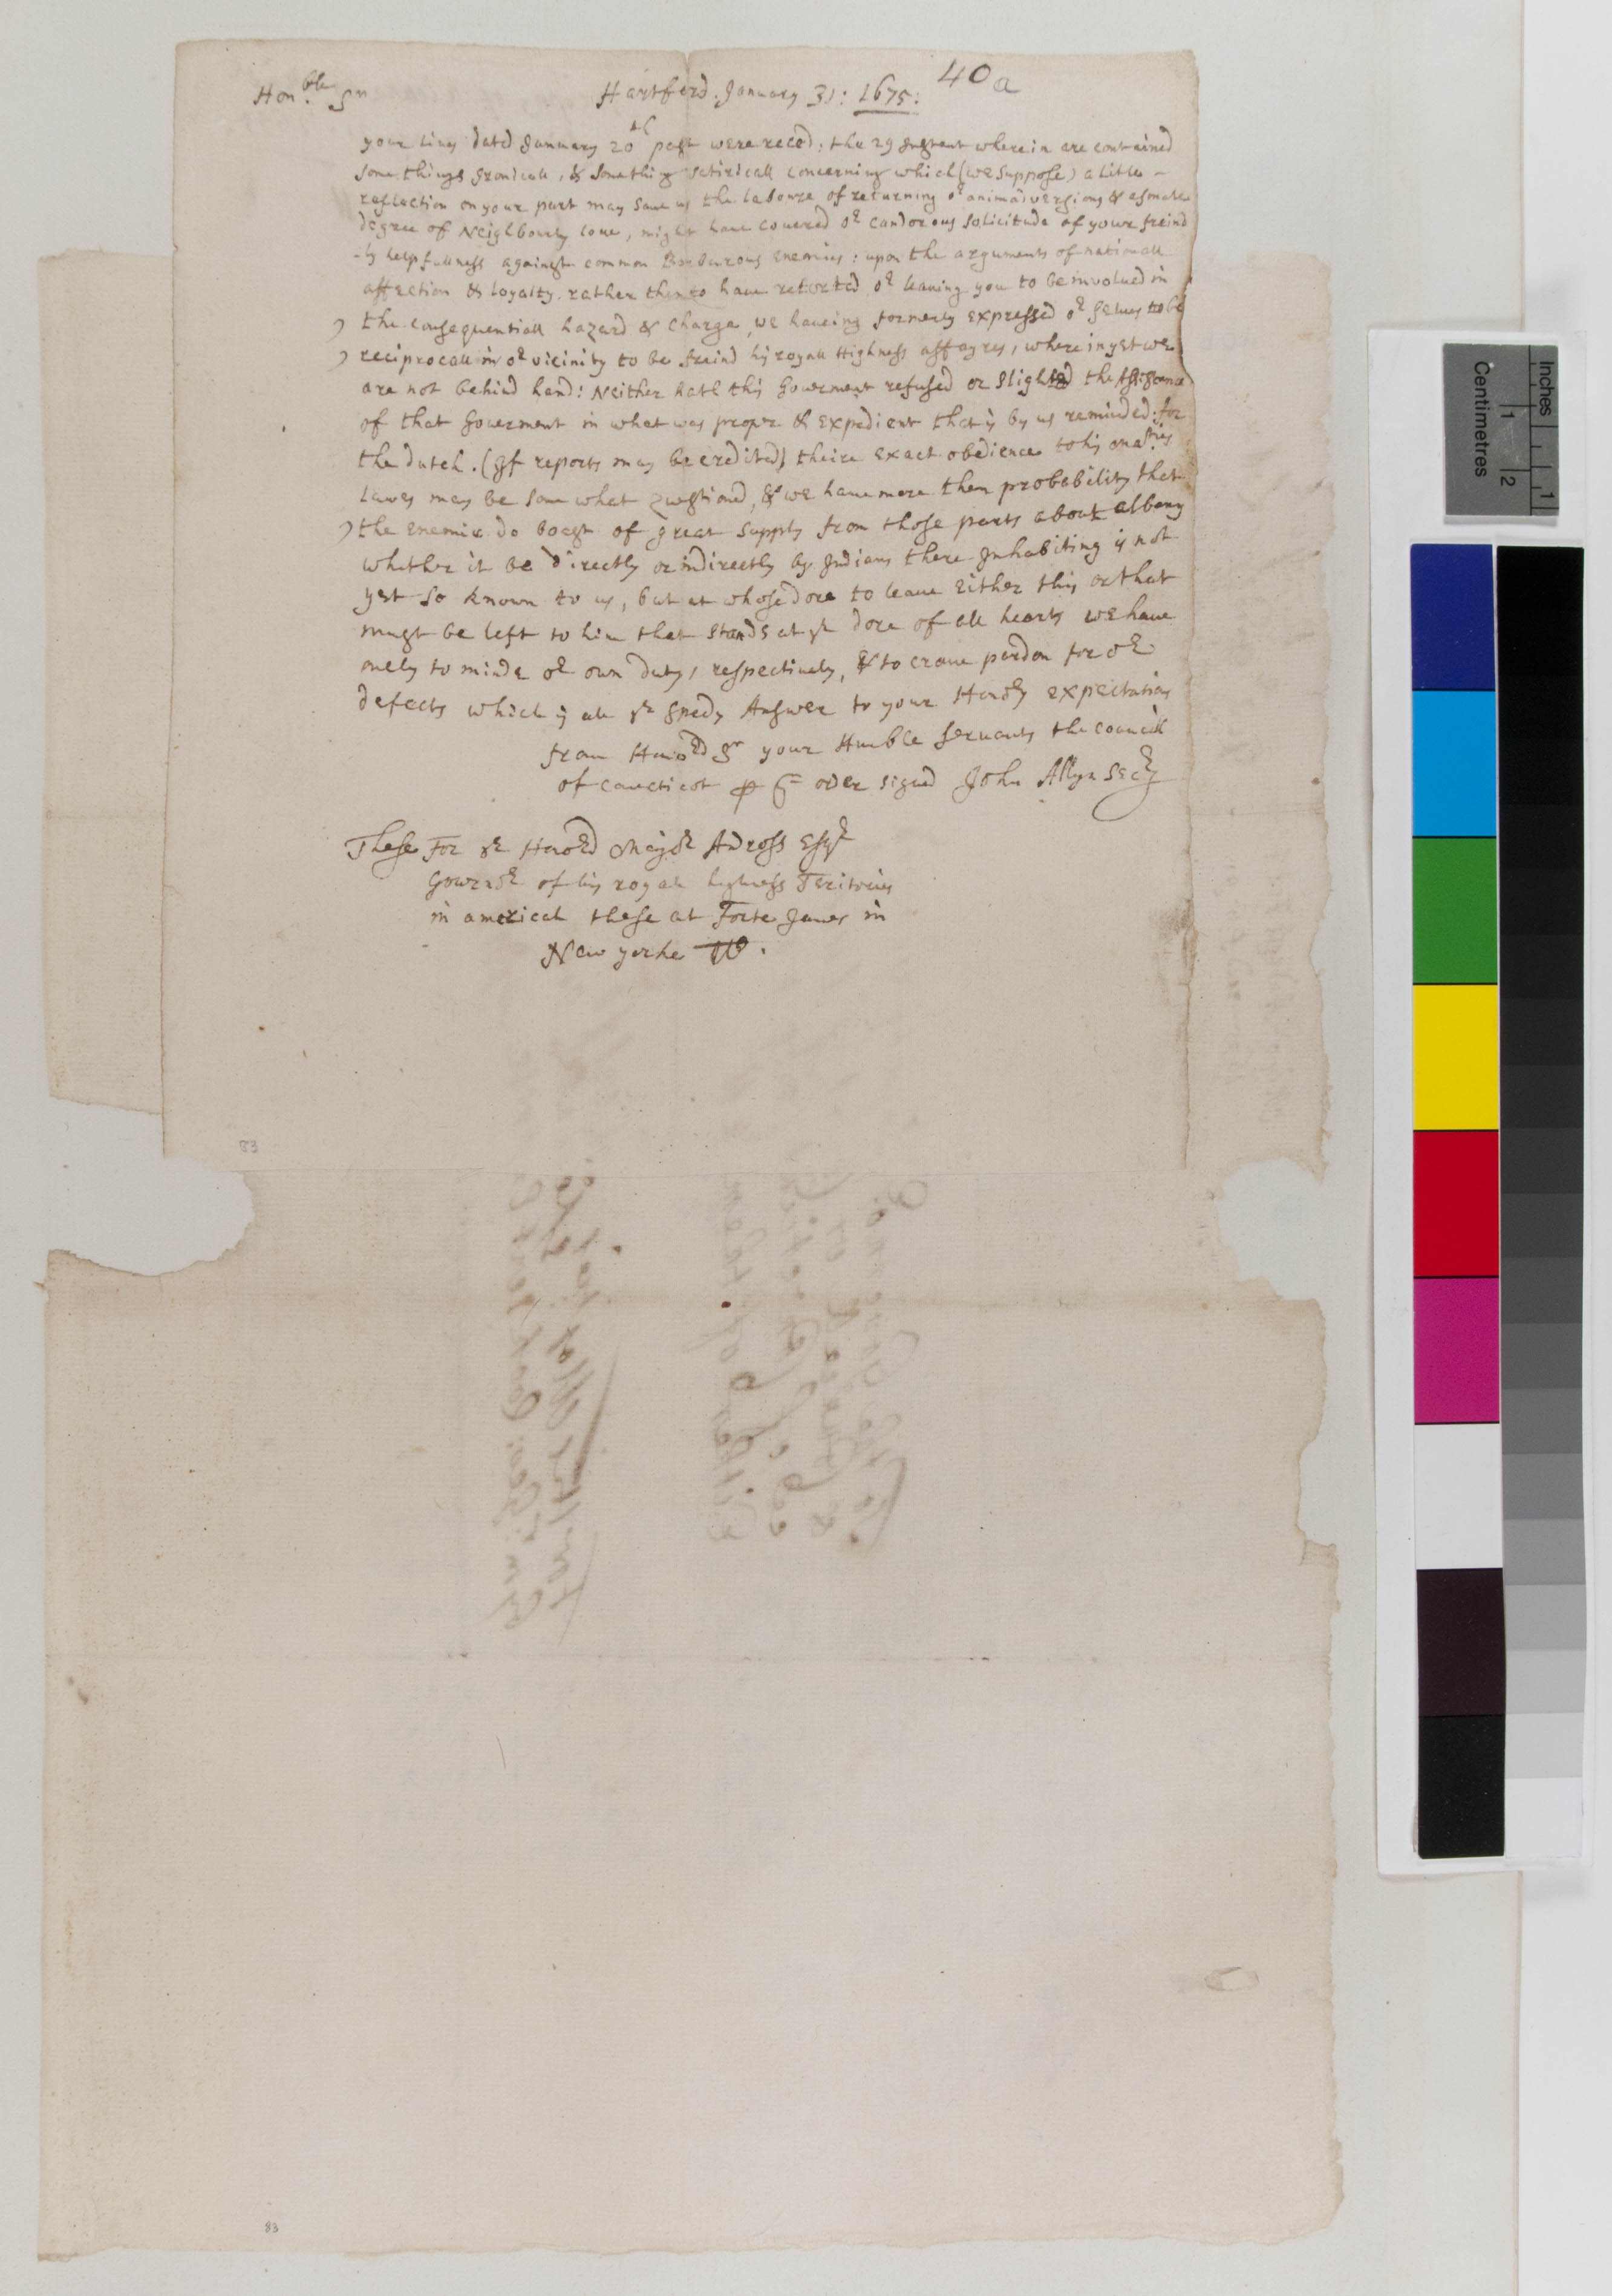 40 a
Honble Sr Hartford. January 31: 1675:
your lines dated January 20th past were reced: the 29 Instant where in are contained
some things Ironicall, & something satiricall concerning which (we suppose) a little
reflection on your part may save us the laboure of returning or animadversions &
degree of Neighbourly love, might have covered or candorous solicitude of your freind
-ly helpfullness against common Barbarous enemies: upon the arguments of nationall
affection & loyalty. rather then to have retorted or leaving you to be involved in
the consequentiall hazard & charge, we haveing formerly expressed or selves to be
reciprocall in or vicinity to be freind his royall Highness affayres, where in yet we
are not behind hand: Neither hath this Goverment refused or slighted the Assistance
of that Goverment in what was proper & expedient that is by us reminded: for
the dutch. (If reports may be credited) theire exact obedience to his maties
Lawes may be some what questioned, & we have more then probability that
the enemie do boast of great supply from those parts about albany
whether it be directly or indirectly by Indians there Inhabiting is not
yet so known to us, but at whose dore to leave either this or that
must be left to him that stands at ye dore of all hearts we have
onely to minde or own duty, respectively, & to crave pardon for or
defects which is all ye speedy Answer to your Honors expectations
from Honord Sr your Humble servants the councill
of conecticot p order signed John Allyn Secry
These For ye Honord Major Adross Esqr
Governor of his royall highness Teritories
in americah these at Forte James in
New yorke
83
83
Inches
1
Centimetres
1
2